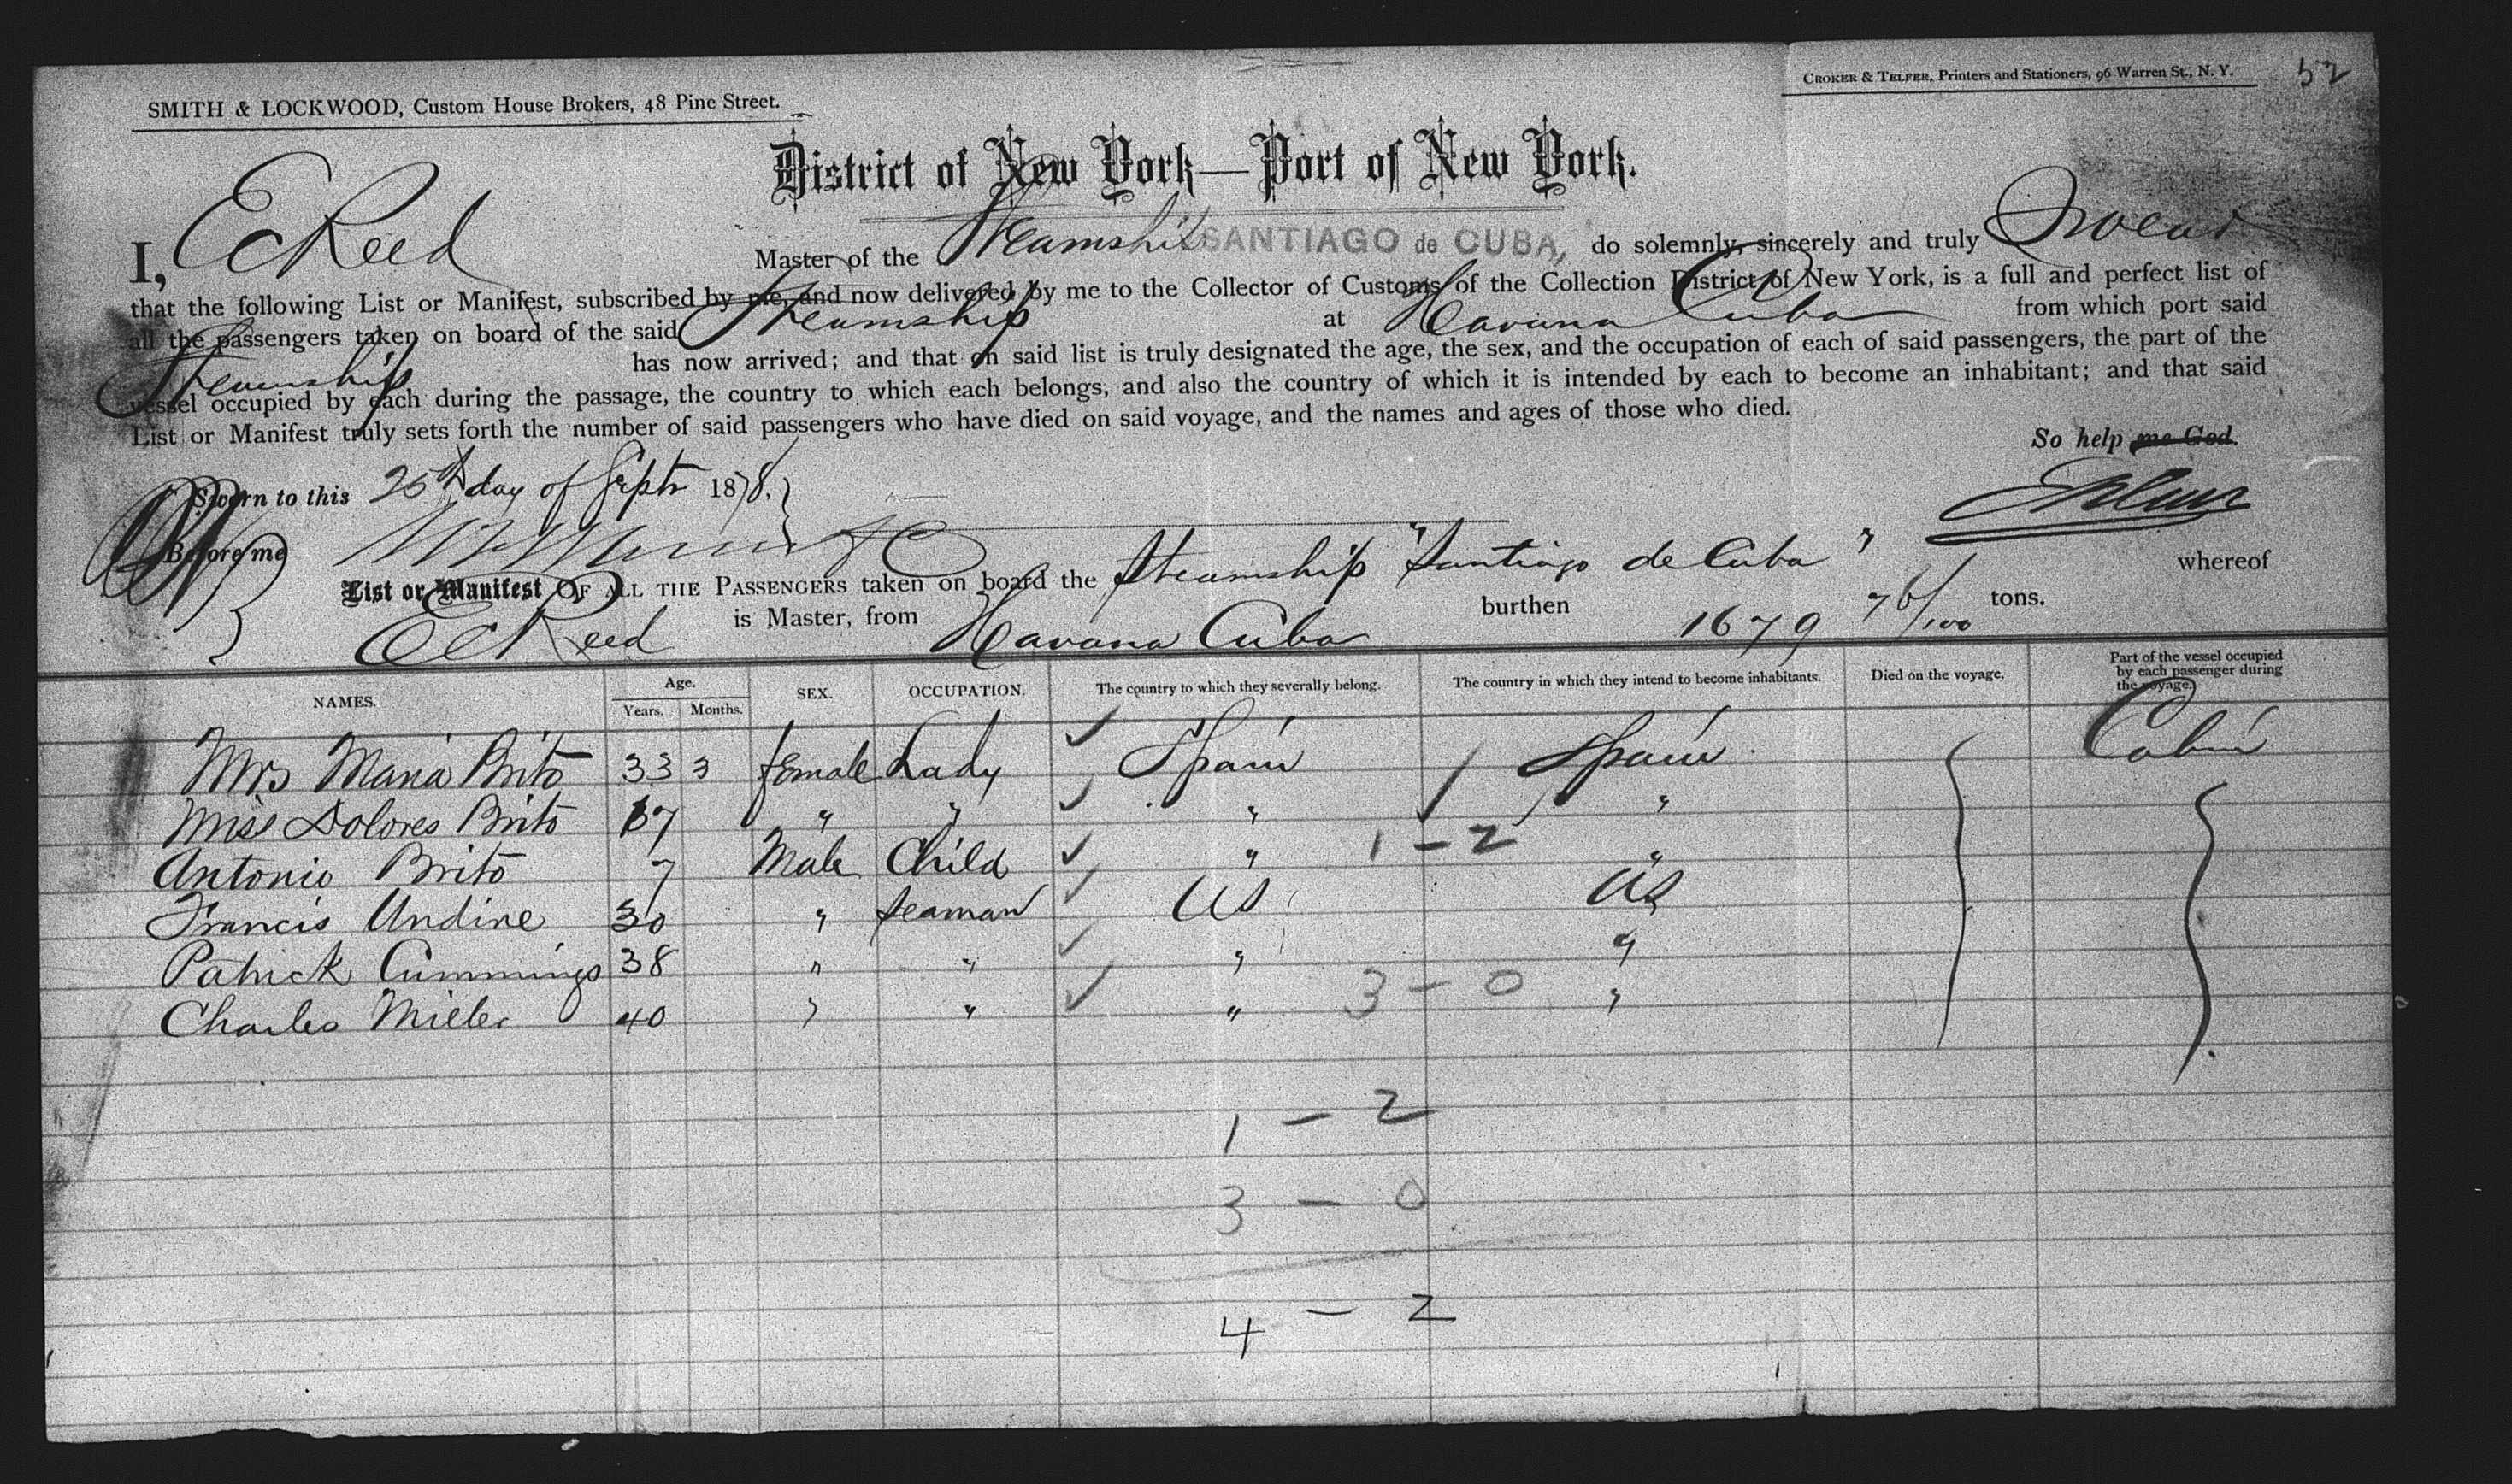 SMITH & LOCKWOOD, Custom House Brokers, 48 Pine Street.
CROKER & TELFER, Printers and Stationers, 96 Warren St., N. Y.
52
District of New York—Port of New York.
I, E C Reed Master of the Steamship SANTIAGO de CUBA, do solemnly, sincerely and truly Swear
that the following List or Manifest, subscribed by me, and now delivered by me to the Collector of Customs of the Collection District of New York, is a full and perfect list of
all the passengers taken on board of the said Steamship at Havana Cuba from which port said
Steamship has now arrived; and that on said list is truly designated the age, the sex, and the occupation of each of said passengers, the part of the
vessel occupied by each during the passage, the country to which each belongs, and also the country of which it is intended by each to become an inhabitant; and that said
List or Manifest truly sets forth the number of said passengers who have died on said voyage, and the names and ages of those who died.
So help me God.
Sworn to this 25th day of Septr 1878.
Before me
List or Manifest OF ALL THE PASSENGERS taken on board the Steamship "Santiago de Cuba" whereof
E C Reed is Master, from Havana Cuba burthen 1679 76/100 tons.
NAMES. Age. Years. Months. SEX. OCCUPATION. The country to which they severally belong. The country in which they intend to become inhabitants. Died on the voyage. Part of the vessel occupied by each passenger during the voyage.
Mrs Maria Brito 33 3 female Lady Spain Spain Cabin
Miss Dolores Brito 17 " " " "
Antonio Brito 7 Male Child " 1 - 2 "
Francis Undine 30 " Seaman US US
Patrick Cummings 38 " " " "
Charles Mieler 40 " " " 3 - 0 "
1 - 2
3 - 0
4 - 2